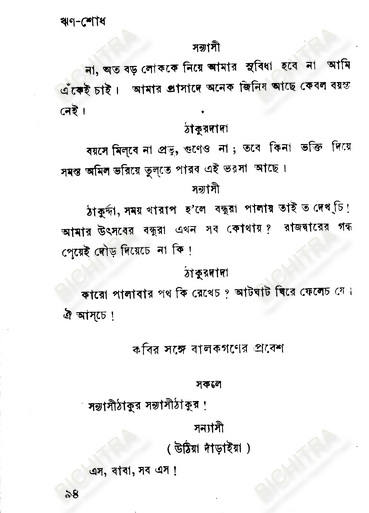 ঋণ-শোধ
সন্ন্যাসী
না, অত বড় লোককে নিয়ে আমার সুবিধা হবে না আমি
এঁকেই চাই। আমার প্রাসাদে অনেক জিনিষ আছে কেবল বয়স্য
নেই।
ঠাকুরদাদা
বয়সে মিল্‌বে না প্রভু, গুণেও না; তবে কিনা ভক্তি দিয়ে
সমস্ত অমিল ভরিয়ে তুল্‌তে পারব এই ভরসা আছে।
সন্ন্যাসী
ঠাকুর্দ্দা, সময় খারাপ হ'লে বন্ধুরা পালায় তাই ত দেখ্‌চি!
আমার উৎসবের বন্ধুরা এখন সব কোথায়? রাজদ্বারের গন্ধ
পেয়েই দৌড় দিয়েচে না কি!
ঠাকুরদাদা
কারো পালাবার পথ কি রেখেচ? আটঘাট ঘিরে ফেলেচ যে।
ঐ আস্‌চে!
কবির সঙ্গে বালকগণের প্রবেশ
সকলে
সন্ন্যাসীঠাকুর সন্ন্যাসীঠাকুর!
সন্ন্যাসী
(উঠিয়া দাঁড়াইয়া)
এস, বাবা, সব এস!
৯৪
BICHITRA
BICHITRA
BICHITRA
BICHITRA
BICHITRA
BICHITRA